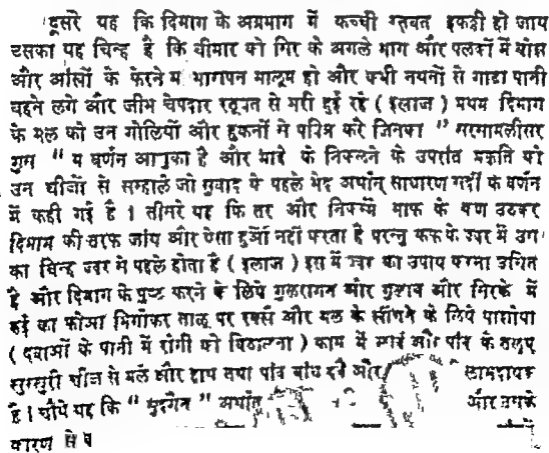 दूसरे यह कि दिमाग के अग्रभाग में कच्ची रतूवत इकट्ठी हो जाय
उसका यह चिन्ह है कि बीमार को सिर के अगले भाग और पलकों में बोझ
और आंखों के फेरने म भारापन मालूम हो और कभी नथनों से गाढा पानी
बहने लगे और जीभ चेपदार रतूवत से भरी हुई रहे (इलाज) प्रथम दिमाग
के मल को उन गोलियों और हुकनों से पवित्र करे जिनका "सरसामलीसर
गुस" म वर्णन आचुका है और मादे के निकलने के उपरांत प्रकृति को
उन चीजों से सम्हाले जो सुवाद के पहले भेद अर्थात् साधारण सर्दी के वर्णन
में कही गई है । तीसरे यह कि तर और निकम्मे भाफ के कण उठकर
दिमाग की तरफ जांय और ऐसा हुआँ नहीं करता है परन्तु कफ के ज्वर में उस
का चिन्ह ज्वर से पहले होता है (इलाज) इस में ज्वर का उपाय करना उचित
है और दिमाग के पुष्ट करने के लिये गुलरोगन और गुलाब और सिरके में
रुई का फोआ भिगोकर तालू पर रक्खें और मल के खींचने के लिये पाशोया
(दवाओं के पानी में रोगी को बिठालना) काम में लावें और पांव के तलुए
खुरखुरी चीज से मले और हाथ तथा पांव बांध देवै और लाभदायक
है । चौथे यह कि " अर्थात और उसके
कारण से